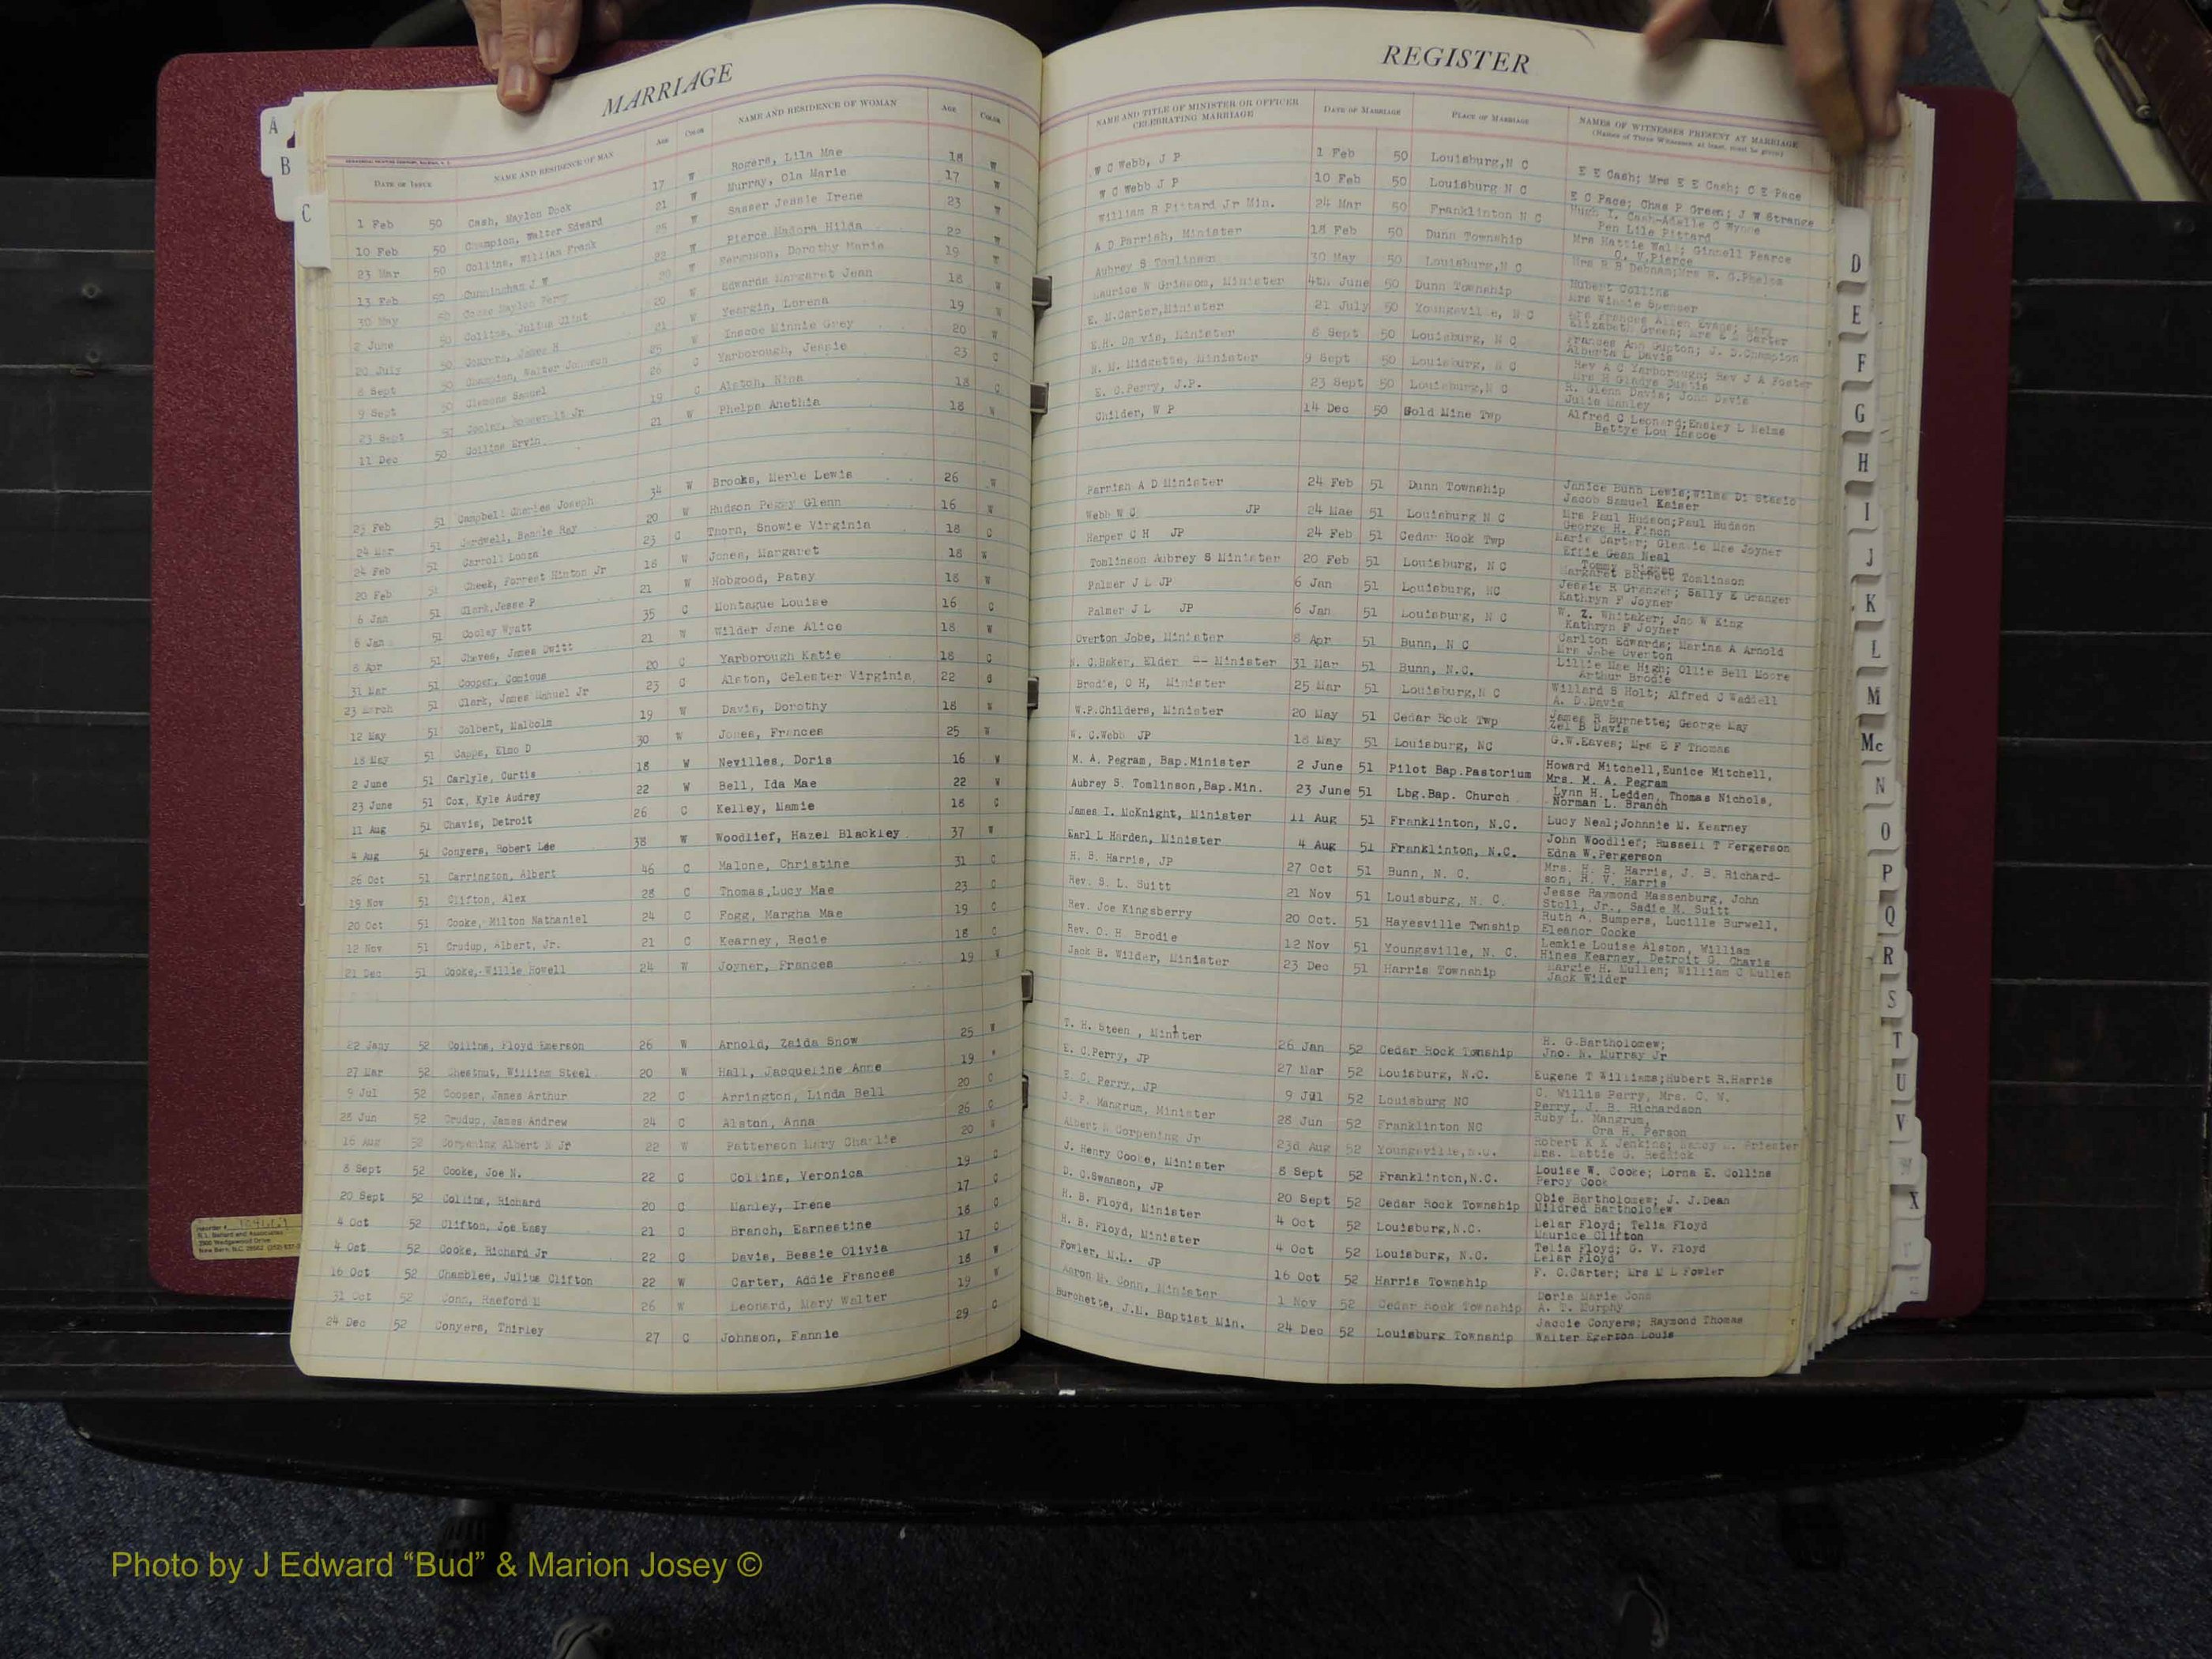 MARRIAGE
DATE OF ISSUE NAME AND RESIDENCE OF MAN AGE COLOR NAME AND RESIDENCE OF WOMAN AGE COLOR
1 Feb 50 Cash, Maylon Dock 17 W Rogers, Lila Mae 18 W
10 Feb 50 Champion, Walter Edward 21 W Murray, Ola Marie 17 W
23 Mar 50 Collins, William Frank 25 W Sasser Jessie Irene 23 W
13 Feb 50 Cunningham J W 22 W Pierce Madora Hilda 22 W
30 May 50 Maylon Perry 20 W Ferguson, Dorothy Marie 19 W
2 June 50 Collins, Julius Clint 20 W Edwards Margaret Jean 18 W
20 July 50 Conyers, James H 21 W Yeargin, Lorena 19 W
8 Sept 50 Champion, Walter Johnson 25 W Inscoe Minnie Grey 20 W
9 Sept 50 Clemons Samuel 26 C Yarborough, Jessie 23 C
23 Sept 50 Cooley, Roosevelt Jr 19 C Alston, Nina 18 C
11 Dec 50 Collins Ervin 21 W Phelps Anethia 18 W
23 Feb 51 Campbell Charles Joseph 34 W Brooks, Merle Lewis 26 W
24 Mar 51 Cardwell, Bennie Ray 20 W Hudson Peggy Glenn 16 W
24 Feb 51 Carroll Lonza 23 C Thorn, Snowie Virginia 18 C
20 Feb 51 Cheek, Forrest Hinton Jr 18 W Jones, Margaret 18 W
6 Jan 51 Clark, Jesse P 21 W Hobgood, Patsy 18 W
6 Jan 51 Cooley Wyatt 35 C Montague Louise 16 C
8 Apr 51 Cheves, James Dwitt 21 W Wilder Jane Alice 18 W
31 Mar 51 Cooper, Comious 20 C Yarborough Katie 18 C
23 March 51 Clark, James Manuel Jr 23 C Alston, Celester Virginia 22 C
12 May 51 Colbert, Malcolm 19 W Davis, Dorothy 18 W
18 May 51 Capps, Elmo D 30 W Jones, Frances 25 W
2 June 51 Carlyle, Curtis 18 W Nevilles, Doris 16 W
23 June 51 Cox, Kyle Audrey 22 W Bell, Ida Mae 22 W
11 Aug 51 Chavis, Detroit 26 C Kelley, Mamie 18 C
4 Aug 51 Conyers, Robert Lee 38 W Woodlief, Hazel Blackley 37 W
26 Oct 51 Carrington, Albert 46 C Malone, Christine 31 C
19 Nov 51 Clifton, Alex 28 C Thomas, Lucy Mae 23 C
20 Oct 51 Cooke, Milton Nathaniel 24 C Fogg, Margha Mae 19 C
12 Nov 51 Crudup, Albert, Jr. 21 C Kearney, Recie 18 C
21 Dec 51 Cooke, Willie Howell 24 W Joyner, Frances 19 W
22 Jany 52 Collins, Floyd Emerson 26 W Arnold, Zaida Snow 25 W
27 Mar 52 Chestnut, William Steel 20 W Hall, Jacqueline Anne 19
9 Jul 52 Cooper, James Arthur 22 C Arrington, Linda Bell 20 C
28 Jun 52 Crudup, James Andrew 24 C Alston, Anna 26 C
16 Aug 52 Corpening Albert N Jr 22 W Patterson Mary Charlie 20 W
8 Sept 52 Cooke, Joe N. 22 C Collins, Veronica 19 C
20 Sept 52 Collins, Richard 20 C Manley, Irene 17 C
4 Oct 52 Clifton, Joe Easy 21 C Branch, Earnestine 18 C
4 Oct 52 Cooke, Richard Jr 22 C Davis, Bessie Olivia 17 C
16 Oct 52 Chamblee, Julius Clifton 22 W Carter, Addie Frances 18 W
31 Oct 52 Conn, Raeford M 26 W Leonard, Mary Walter 19 W
24 Dec 52 Conyers, Thirley 27 C Johnson, Fannie 29 C
REGISTER
NAME AND TITLE OF MINISTER OR OFFICER CELEBRATING MARRIAGE DATE OF MARRIAGE PLACE OF MARRIAGE NAMES OF WITNESSES PRESENT AT MARRIAGE
(Names of Three Witnesses, at least, must be given)
W C Webb, J P 1 Feb 50 Louisburg, N C E E Cash; Mrs E E Cash; C E Pace
W C Webb J P 10 Feb 50 Louisburg N C E C Pace; Chas P Green; J W Strange
William B Pittard Jr Min. 24 Mar 50 Franklinton N C Hugh I. Cash-Adelle C Wynne
Pen Lile Pittard
A D Parrish, Minister 18 Feb 50 Dunn Township Mrs Hattie Wall; Ginnell Pearce
O. M. Pierce
Aubrey S Tomlinson 30 May 50 Louisburg, N C Mrs B B Debnam; Mrs H. G. Phelps
Maurice W Grissom, Minister 4th June 50 Dunn Township Hubert Collins
Mrs Winnie Spenser
E. M. Carter, Minister 21 July 50 Youngsville, N C Mrs Frances Allen Evans; Mary
Elizabeth Green; Mrs E M Carter
E.H. Davis, Minister 8 Sept 50 Louisburg, N C Frances Ann Gupton; J. S. Champion
Alberta L Davis
H. M. Midgette, Minister 9 Sept 50 Louisburg, N C Rev A C Yarborough; Rev J A Foster
Mrs R Gladys Curtis
E. C. Perry, J.P. 23 Sept 50 Louisburg, N C R. Glenn Davis; John Davis
Julia Manley
Childer, W P 14 Dec 50 Gold Mine Twp Alfred C Leonard; Ensley L Nelms
Bettye Lou Inscoe
Parrish A D Minister 24 Feb 51 Dunn Township Janice Bunn Lewis; Wilma Di Stasio
Jacob Samuel Kaiser
Webb W C JP 24 Mae 51 Louisburg N C Mrs Paul Hudson; Paul Hudson
George H. Finch
Harper C H JP 24 Feb 51 Cedar Rock Twp Marie Carter; Glennie Mae Joyner
Effie Gean Neal
Tomlinson Aubrey S Minister 20 Feb 51 Louisburg, N C Tommy Riggan
Margaret Barrett Tomlinson
Palmer J L JP 6 Jan 51 Louisburg, NC Jessie R Granger; Sally E Granger
Kathryn F Joyner
Palmer J L JP 6 Jan 51 Louisburg, N C W. Z. Whitaker; Jno W King
Kathryn F Joyner
Overton Jobe, Minister 8 Apr 51 Bunn, N C Carlton Edwards; Marina A Arnold
Mrs Jobe Overton
N. C. Baker, Elder -- Minister 31 Mar 51 Bunn, N.C. Lillie Mae High; Ollie Bell Moore
Arthur Brodie
Brodie, O H, Minister 25 Mar 51 Louisburg, N C Willard S Holt; Alfred C Waddell
A. D. Davis
W.P.Childers, Minister 20 May 51 Cedar Rock Twp James R Burnette; George May
Zel B Davis
W. C.Webb JP 18 May 51 Louisburg, NC G.W.Eaves; Mrs E F Thomas
M. A. Pegram, Bap.Minister 2 June 51 Pilot Bap.Pastorium Howard Mitchell, Eunice Mitchell,
Mrs. M. A. Pegram
Aubrey S. Tomlinson, Bap.Min. 23 June 51 Lbg.Bap. Church Lynn H. Ledden, Thomas Nichols,
Norman L. Branch
James I. McKnight, Minister 11 Aug 51 Franklinton, N.C. Lucy Neal; Johnnie M. Kearney
Earl L Harden, Minister 4 Aug 51 Franklinton, N.C. John Woodlief; Russell T Pergerson
Edna W.Pergerson
H. B. Harris, JP 27 Oct 51 Bunn, N. C. Mrs. H. B. Harris, J. B. Richard-
son, H. V. Harris
Rev. S. L. Suitt 21 Nov 51 Louisburg, N. C. Jesse Raymond Massenburg, John
Stoll, Jr., Sadie M. Suitt
Rev. Joe Kingsberry 20 Oct. 51 Hayesville Twnship Ruth A. Bumpers, Lucille Burwell,
Eleanor Cooke
Rev. O. H. Brodie 12 Nov 51 Youngsville, N. C. Lemkie Louise Alston, William
Hines Kearney, Detroit G. Chavis
Jack B. Wilder, Minister 23 Dec 51 Harris Township Margie H. Mullen; William C Mullen
Jack Wilder
T. H. Steen, Minister 26 Jan 52 Cedar Rock Tonship H. G.Bartholomew;
Jno. N. Murray Jr
E. C.Perry, JP 27 Mar 52 Louisburg, N.C. Eugene T Williams; Hubert R.Harris
E. C. Perry, JP 9 Jul 52 Louisburg NC C. Willis Perry, Mrs. C. W.
Perry, J. B. Richardson
J. P. Mangrum, Minister 28 Jun 52 Franklinton NC Ruby L. Mangrum,
Ora H. Person
Albert N Corpening Jr 23d Aug 52 Youngsville, N.C. Robert K K Jenkins; Nancy M. Priester
Mrs. Mattie G. Redrick
J. Henry Cooke, Minister 8 Sept 52 Franklinton, N.C. Louise W. Cooke; Lorna E. Collins
Percy Cook
D. C.Swanson, JP 20 Sept 52 Cedar Rock Township Obie Bartholomew; J. J.Dean
Mildred Bartholomew
H. B. Floyd, Minister 4 Oct 52 Louisburg, N.C. Lelar Floyd; Telia Floyd
Maurice Clifton
H. B. Floyd, Minister 4 Oct 52 Louisburg, N.C. Telia Floyd; G. V. Floyd
Lelar Floyd
Fowler, M.L. JP 16 Oct 52 Harris Township F. C.Carter; Mrs M L Fowler
Aaron M. Conn, Minister 1 Nov 52 Cedar Rock Township Doris Marie Conn
A. T. Murphy
Burchette, J.M. Baptist Min. 24 Dec 52 Louisburg Township Jaccie Conyers; Raymond Thomas
Walter Egerton Louis
A
B
C
D
E
F
G
H
I
J
K
L
M
Mc
N
O
P
Q
R
S
T
U
V
W
X
Y
Photo by J Edward “Bud” & Marion Josey ©